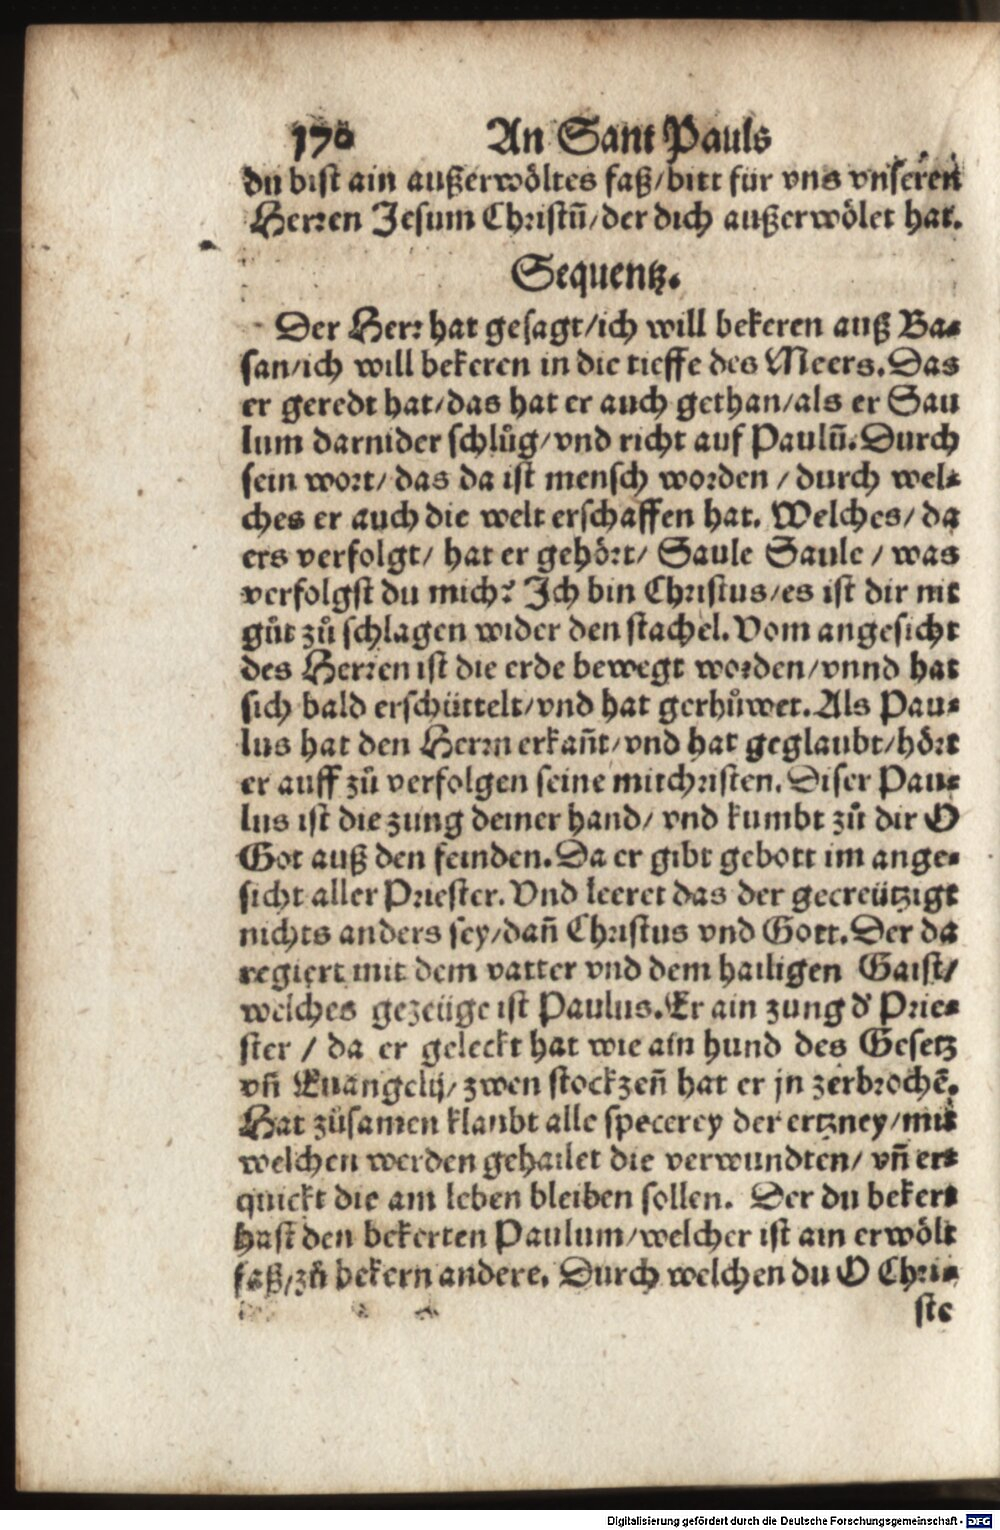 170 An Sant Pauls
du bist ain außerwöltes faß/bitt für vns vnseren
Herren Jesum Christū/der dich außerwölet hat.
Sequentz.
Der Herr hat gesagt/ich will bekeren auß Ba⸗
san/ich will bekeren in die tieffe des Meers. Das
er geredt hat/das hat er auch gethan/als er Sau
lum darnider schlůg/vnd richt auf Paulū. Durch
sein wort/ das da ist mensch worden / durch wel⸗
ches er auch die welt erschaffen hat. Welches/ da
ers verfolgt/ hat er gehört/ Saule Saule / was
verfolgst du mich? Ich bin Christus/es ist dir nit
gůt zů schlagen wider den stachel. Vom angesicht
des Herren ist die erde bewegt worden/vnnd hat
sich bald erschüttelt/vnd hat gerhůwet. Als Pau⸗
lus hat den Herrn erkañt/vnd hat geglaubt/hört
er auff zů verfolgen seine mitchristen. Diser Pau⸗
lus ist die zung deiner hand/ vnd kumbt zů dir O
Got auß den feinden. Da er gibt gebott im ange⸗
sicht aller Priester. Vnd leeret das der gecreützigt
nichts anders sey/dañ Christus vnd Gott. Der da
regiert mit dem vatter vnd dem hailigen Gaist/
welches gezeüge ist Paulus. Er ain zung d' Prie⸗
ster / da er geleckt hat wie ain hund des Gesetz
vñ Euangelij/ zwen stockzeñ hat er jn zerbrochē.
Hat zůsamen klaubt alle specerey der ertzney/mit
welchen werden gehailet die verwundten/ vñ er⸗
quickt die am leben bleiben sollen. Der du bekert
hast den bekerten Paulum/welcher ist ain erwölt
faß/zů bekern andere. Durch welchen du O Chri⸗
ste
Digitalisierung gefördert durch die Deutsche Forschungsgemeinschaft - DFG